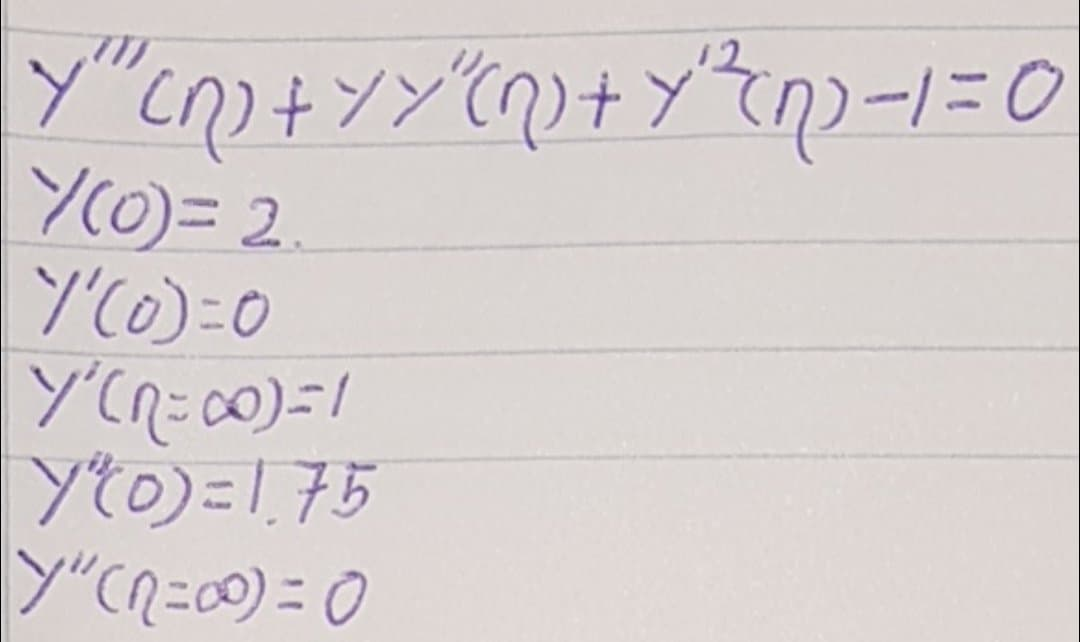 y'''(η)+yy''(η)+y'²(η)-1=0
y(0)=2.
y'(0)=0
y'(η=∞)=1
y''(0)=1.75
y''(η=∞)=0